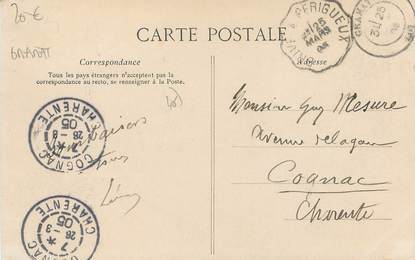 20€
GRAMAT
CARTE POSTALE
Correspondance
Tous les pays étrangers n'acceptent pas la
correspondance au recto, se renseigner à la Poste.
Adresse
PERIGUEUX
25
MARS
GRAMAT
25
Monsieur Guy Mesure
avenue de la gare
Cognac
Charente
baisers
COGNAC
7 *
26 - 3
05
CHARENTE
COGNAC
7 *
26 - 3
05
CHARENTE